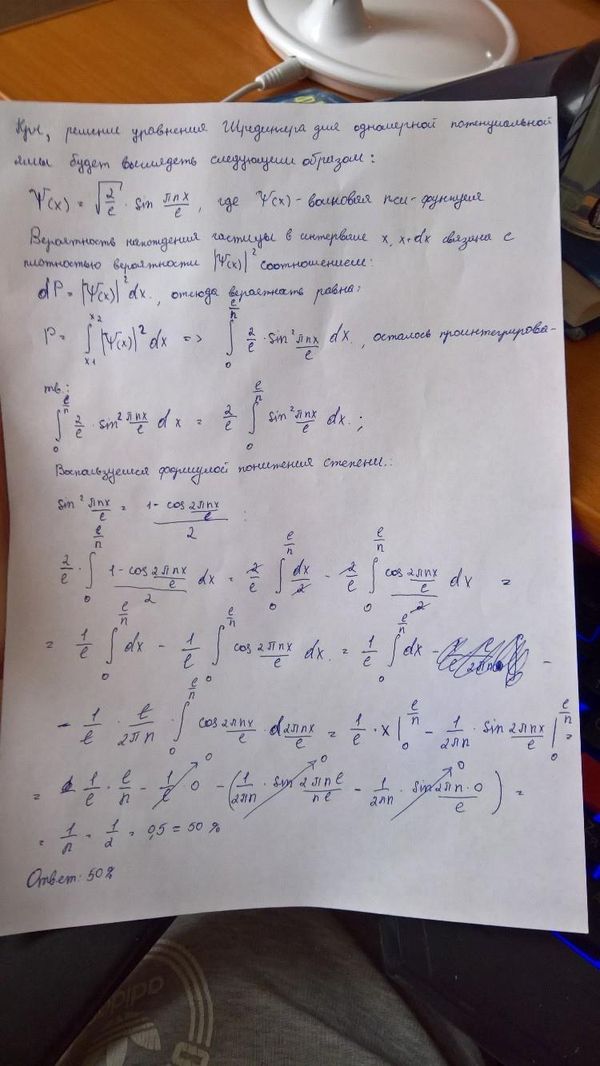 Итак, решение уравнения Шредингера для одномерной потенциальной
ямы будет выглядеть следующим образом:
Ψ(x) = √(2/ℓ) · sin πnx/ℓ, где Ψ(x) - волновая пси-функция
Вероятность нахождения частицы в интервале x, x+dx связана с
плотностью вероятности |Ψ(x)|² соотношением:
dP = |Ψ(x)|² dx., отсюда вероятность равна:
P = ∫_{x1}^{x2} |Ψ(x)|² dx => ∫_0^{ℓ/n} 2/ℓ · sin² πnx/ℓ dx., осталось проинтегрирова-
ть:
∫_0^{ℓ/n} 2/ℓ · sin² πnx/ℓ dx = 2/ℓ ∫_0^{ℓ/n} sin² πnx/ℓ dx.;
Воспользуемся формулой понижения степени.:
sin² πnx/ℓ = (1 - cos 2πnx/ℓ)/2 :
2/ℓ · ∫_0^{ℓ/n} (1 - cos 2πnx/ℓ)/2 dx = 2/ℓ ∫_0^{ℓ/n} dx/2 - 2/ℓ ∫_0^{ℓ/n} (cos 2πnx/ℓ)/2 dx =
= 1/ℓ ∫_0^{ℓ/n} dx - 1/ℓ ∫_0^{ℓ/n} cos 2πnx/ℓ dx. = 1/ℓ ∫_0^{ℓ/n} dx - -
- 1/ℓ · ℓ/2πn · ∫_0^{ℓ/n} cos 2πnx/ℓ · d 2πnx/ℓ = 1/ℓ · x |_0^{ℓ/n} - 1/2πn · sin 2πnx/ℓ |_0^{ℓ/n} =
= 1/ℓ · ℓ/n - 1/ℓ · 0 → 0 - (1/2πn · sin 2πnℓ/nℓ → 0 - 1/2πn · sin 2πn·0/ℓ → 0) =
= 1/n = 1/2 = 0,5 = 50 %
Ответ: 50%
adidas